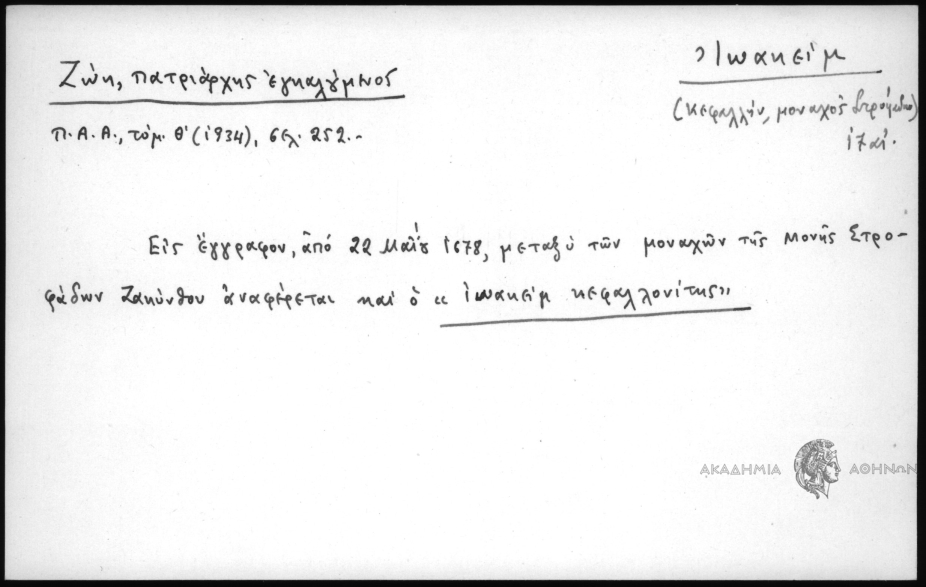 Ζώη, Πατριάρχης ἐγκαλούμενος
Π.Α.Α., τόμ. Θ' (1934), σελ. 252.-
Ἰωακείμ
(Κεφαλλήν, μοναχὸς Στροφάδων)
17 αἰ.
Εἰς ἔγγραφον, ἀπό 22 Μαΐου 1678, μεταξὺ τῶν μοναχῶν τῆς Μονῆς Στρο-
φάδων Ζακύνθου ἀναφέρεται καί ὁ «Ἰωακείμ κεφαλλονίτης»
ΑΚΑΔΗΜΙΑ ΑΘΗΝΩΝ